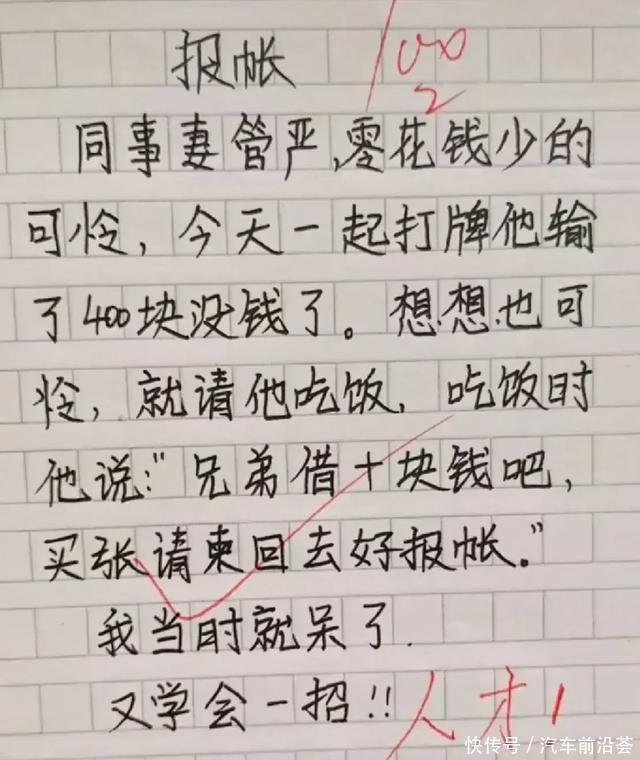 报帐
100
2
同事妻管严,零花钱少的
可怜，今天一起打牌他输
了400块没钱了。想想也可
怜，就请他吃饭，吃饭时
他说:"兄弟借十块钱吧，
买张请柬回去好报帐。"
我当时就呆了.
又学会一招!! 人才!
快传号／汽车前沿荟